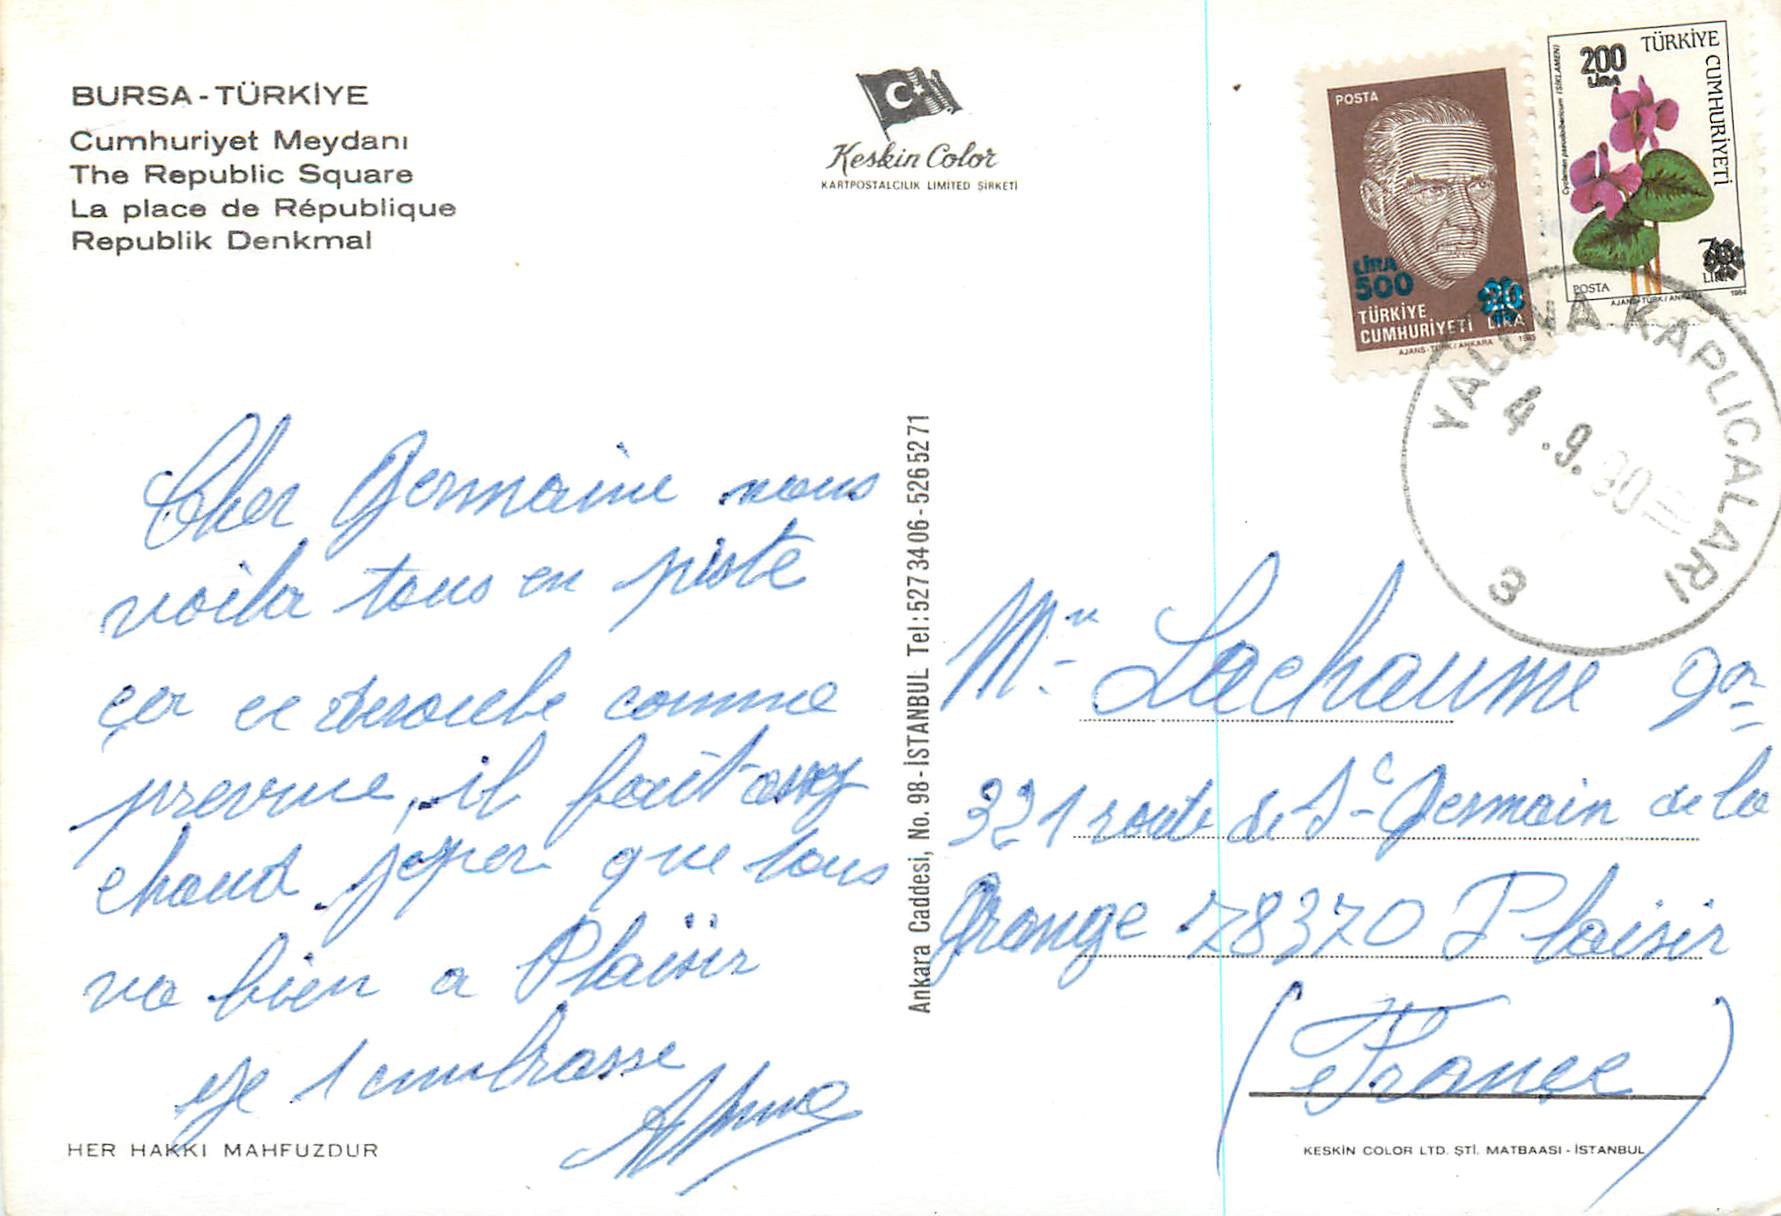 BURSA - TÜRKİYE
Cumhuriyet Meydanı
The Republic Square
La place de République
Republik Denkmal
Keskin Color
KARTPOSTALCILIK LIMITED ŞİRKETİ
POSTA
LİRA
500
20
TÜRKİYE
CUMHURİYETİ LİRA
AJANS-TÜRK / ANKARA 1985
200
LİRA
TÜRKİYE
CUMHURİYETİ
Cyclamen pseudoibericum (SIKLAMEN)
POSTA
LİRA
AJANS-TÜRK / ANKARA 1984
YALOVA KAPLICALARI
4.9.90
3
Cher Germaine nous
voila tous en piste
ça ce deroule comme
prevue, il fait assez
chaud j'esper que tous
va bien a Plaisir
je t embrasse
Ankara Caddesi, No. 98 - İSTANBUL Tel: 527 34 06 - 526 52 71
Lachaume
321 route de St Germain de la
Grange 78370 Plaisir
(France)
HER HAKKI MAHFUZDUR
KESKİN COLOR LTD. ŞTİ. MATBAASI - İSTANBUL